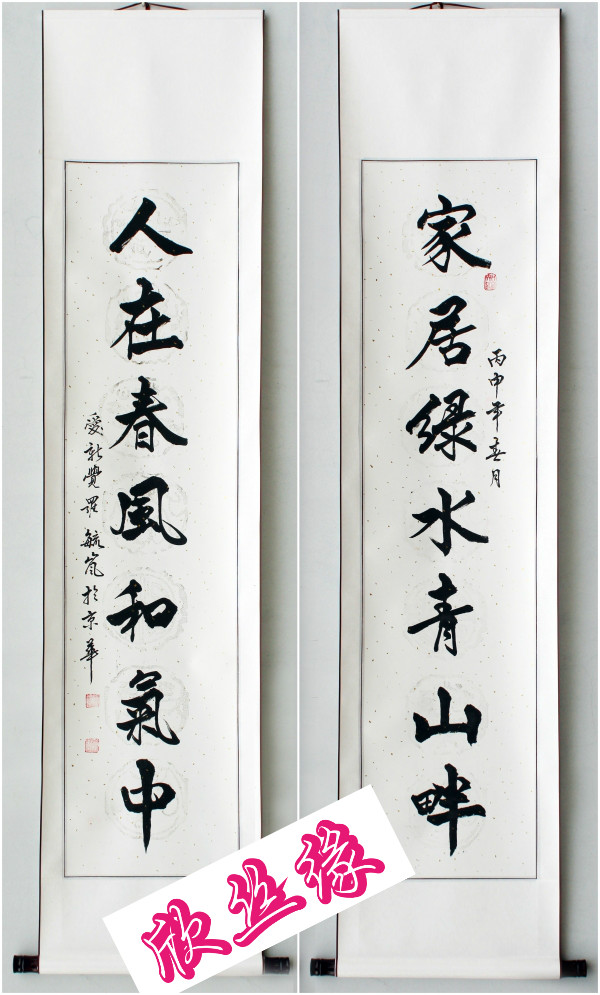 家居绿水青山畔
丙申年春月
人在春风和氣中
愛新覺羅 毓嵐於京華
欣丝缘